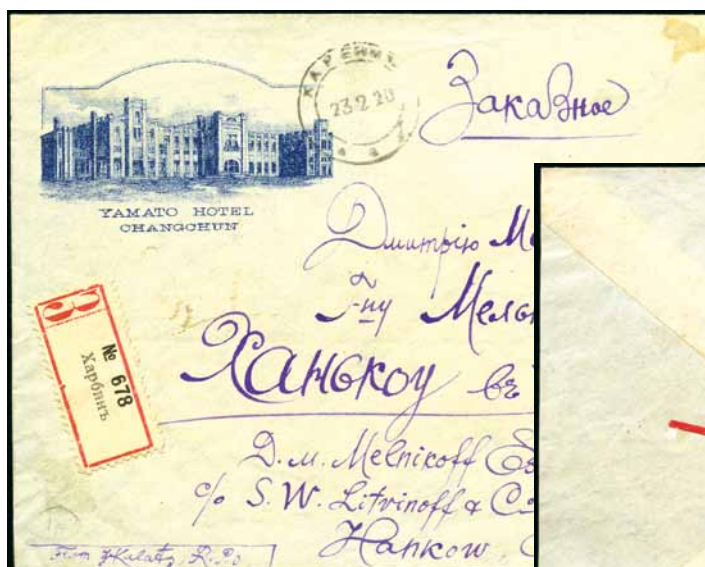 ХАРБИНЪ
23 2 20
Заказное
YAMATO HOTEL
CHANGCHUN
Дмитрію
Г-ну
Ханькоу въ
№ 678
Харбинъ
D. M. Melnikoff
c/o S. W. Litvinoff & Co
Hankow
From